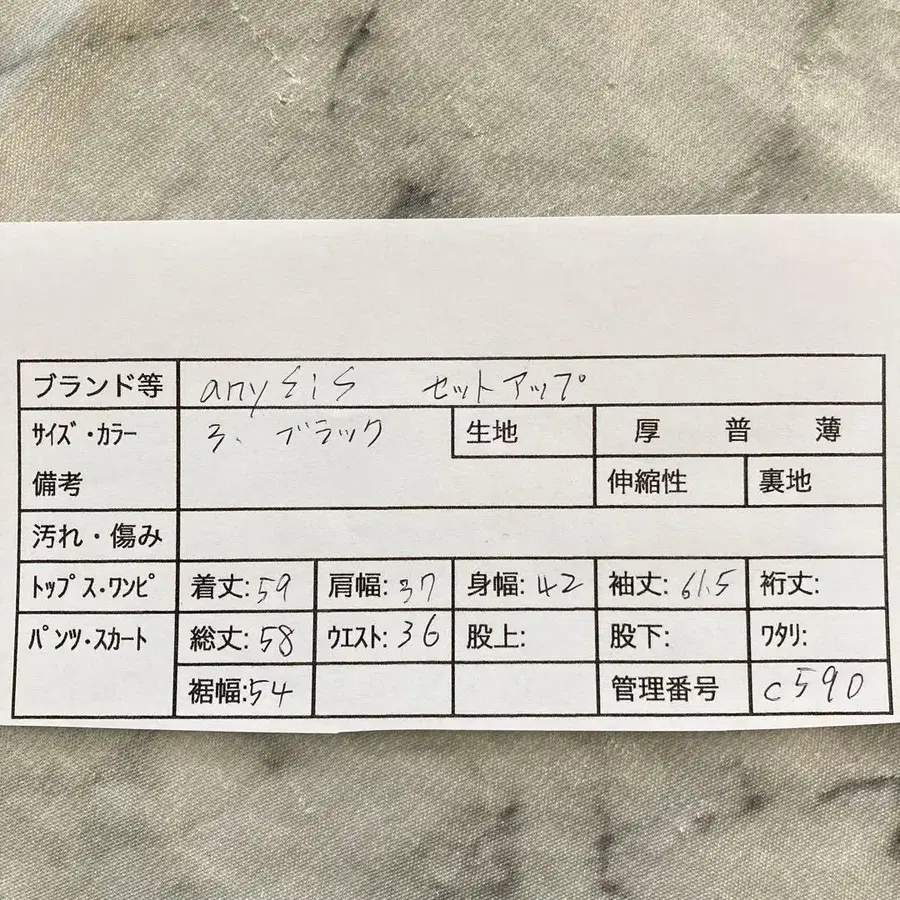 ブランド等 anySiS セットアップ
サイズ・カラー 3. ブラック 生地 厚 普 薄
備考 伸縮性 裏地
汚れ・傷み
トップス・ワンピ 着丈:59 肩幅:37 身幅:42 袖丈:61.5 裄丈:
パンツ・スカート 総丈:58 ウエスト:36 股上: 股下: ワタリ:
裾幅:54 管理番号 c590